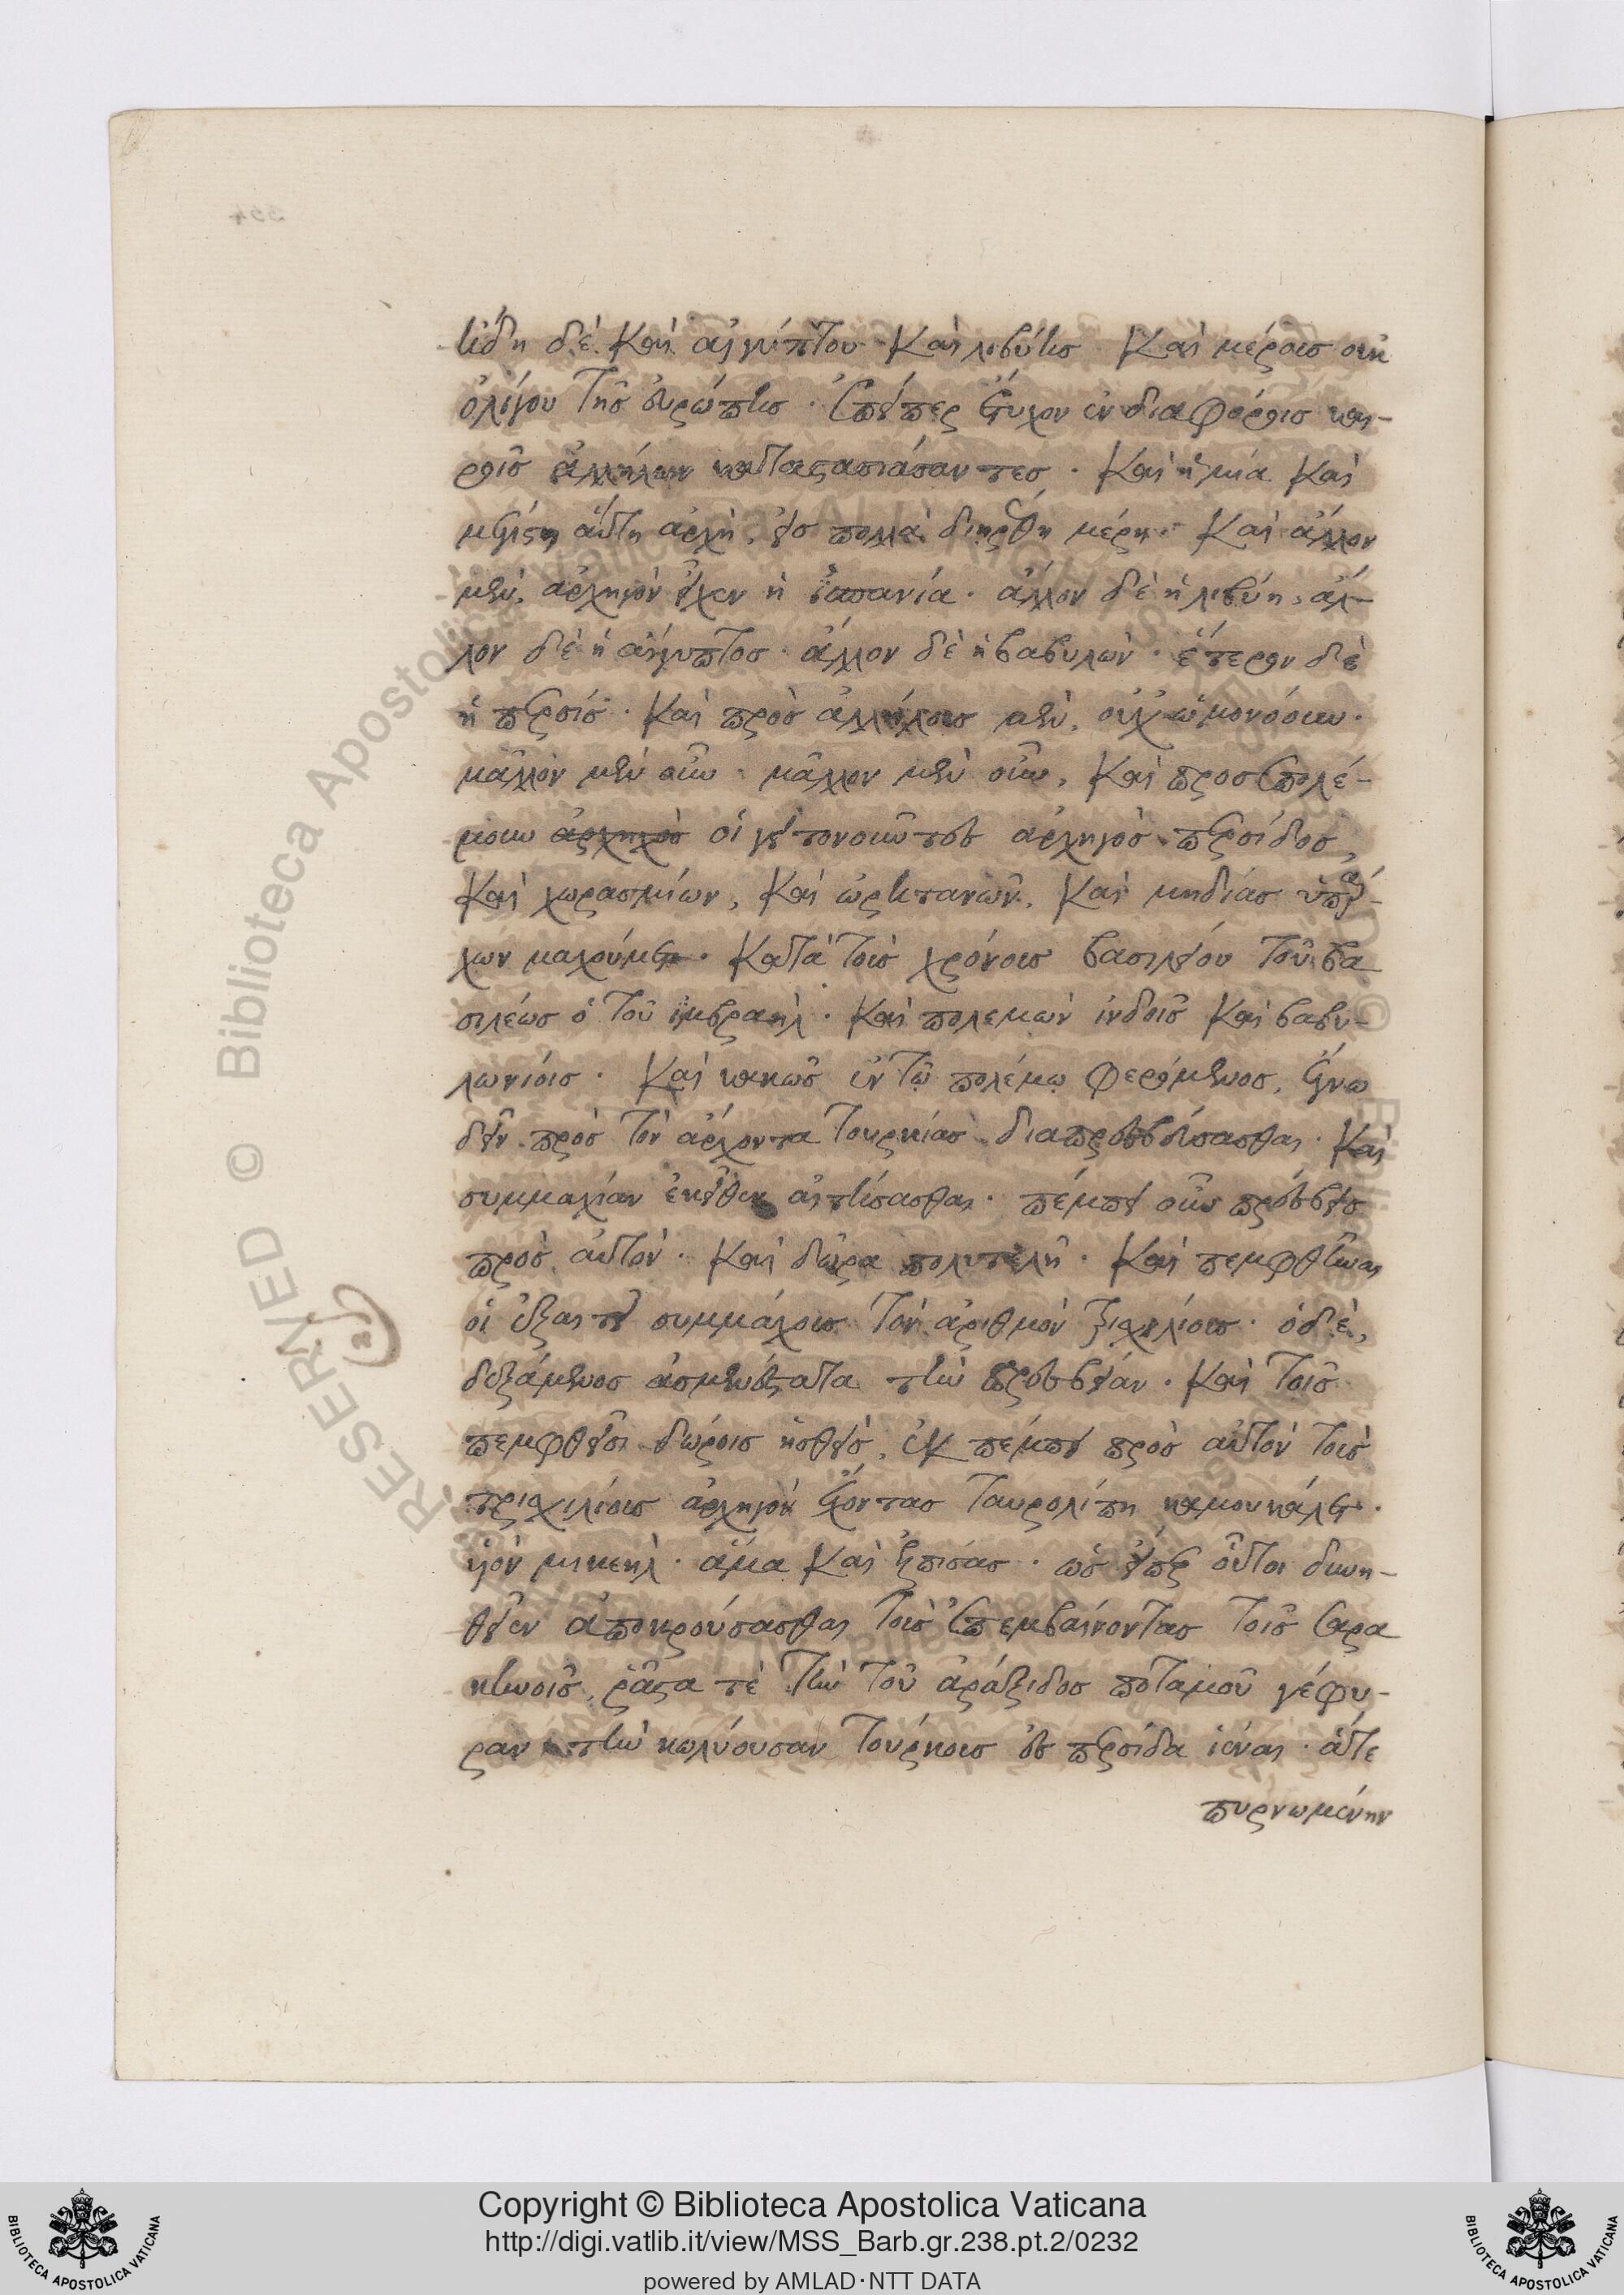 ἤδη δὲ καὶ αἰγύπτου καὶ λιβύης καὶ μέρους οὐκ
ὀλίγου τῆς εὐρώπης. ἐπείπερ ἔτυχον ἐν διαφόροις και-
ροῖς ἀλλήλων καταστασιάσαντες. καὶ ἡ μία καὶ
μεγίστη αὕτη ἀρχὴ, εἰς πολλὰ διῃρέθη μέρη. καὶ ἄλλον
μὲν, ἀρχηγὸν εἶχεν ἡ ἱσπανία. ἄλλον δὲ ἡ λιβύη, ἄλ-
λον δὲ ἡ αἴγυπτος. ἄλλον δὲ ἡ βαβυλὼν. ἕτερον δὲ
ἡ περσίς. καὶ πρὸς ἀλλήλους μὲν, οὐχ ὡμονόουν.
μᾶλλον μὲν οὖν. μᾶλλον μὲν οὖν, καὶ προσεπολέ-
μουν οἱ γειτονοῦντες ἀρχηγὸς περσίδος,
καὶ χωρασμίων, καὶ ὠρητανῶν, καὶ μηδίας ὑπάρ-
χων μαχούμετ. κατὰ τοὺς χρόνους βασιλείου τοῦ βα
σιλέως ὁ τοῦ ἰμβραήλ. καὶ πολεμῶν ἰνδοῖς καὶ βαβυ-
λωνίοις. καὶ κακῶς ἐν τῷ πολέμῳ φερόμενος, ἔγνω
δεῖν πρὸς τὸν ἄρχοντα τουρκίας διαπρεσβεύσασθαι. καὶ
συμμαχίαν ἐκεῖθεν αἰτήσασθαι. πέμπει οὖν πρέσβεις
πρὸς αὐτὸν. καὶ δῶρα πολυτελῆ. καὶ πεμφθῆναι
οἱ ἐξαιτεῖ συμμάχους τὸν ἀριθμὸν τρισχιλίους. ὁ δὲ,
δεξάμενος ἀσμενέστατα τὴν πρεσβείαν. καὶ τοῖς
πεμφθεῖσι δώροις ἡσθεὶς, ἐκπέμπει πρὸς αὐτὸν τοὺς
τρισχιλίους ἀρχηγὸν ἔχοντας ταγρολίπη μουκάλετ.
υἱὸν μικεήλ. ἅμα καὶ ἐλπίσας. ὡς εἴπερ οὗτοι δυνη-
θεῖεν ἀποκρούσασθαι τοὺς ἐπεμβαίνοντας τοῖς σαρα
κηνοῖς, ῥᾷστα τὲ τὴν τοῦ ἀράξιδος ποταμοῦ γέφυ-
ραν τὴν κωλύουσαν τούρκους ἐς περσίδα ἰέναι. ἅτε
πυργωμένην
354
RESERVED © Biblioteca Apostolica Vaticana
Copyright © Biblioteca Apostolica Vaticana
http://digi.vatlib.it/view/MSS_Barb.gr.238.pt.2/0232
powered by AMLAD·NTT DATA
BIBLIOTECA APOSTOLICA VATICANA
BIBLIOTECA APOSTOLICA VATICANA